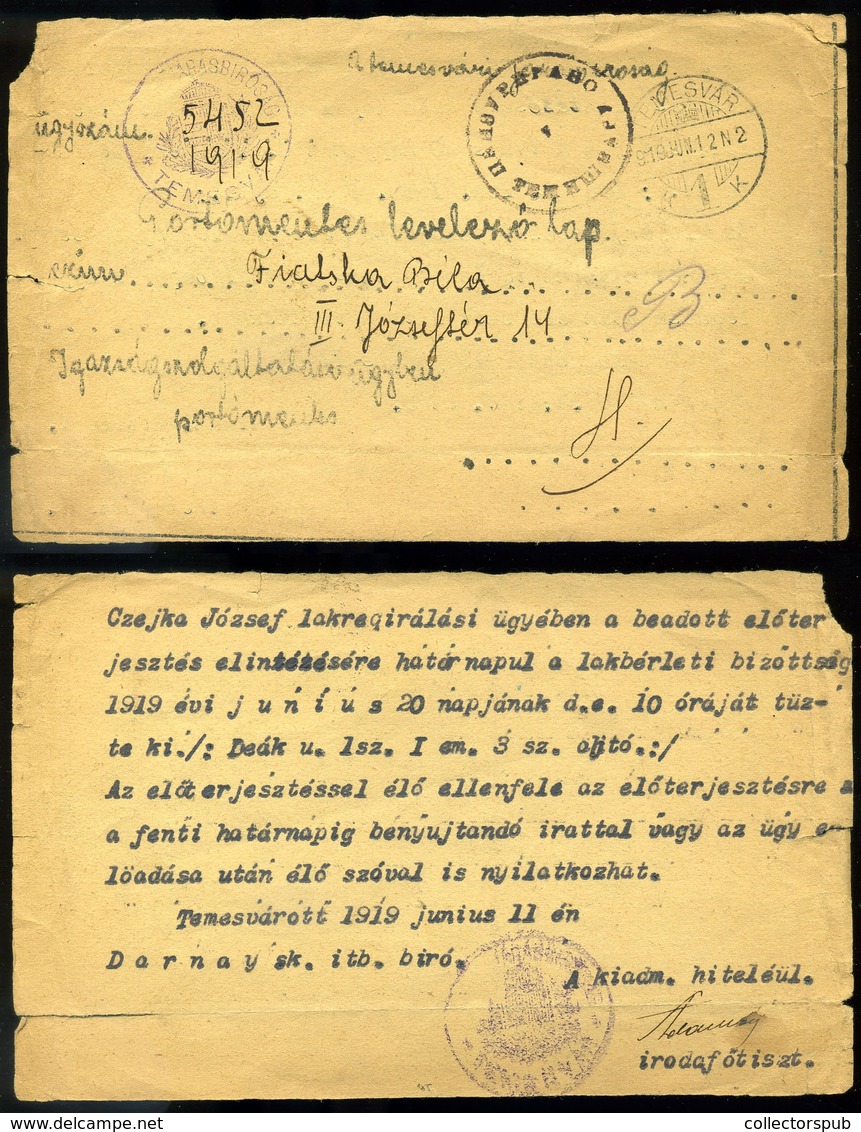 A temesvári járásbiróság.
JÁRÁSBIRÓSÁG
TEMESV
TEMESVÁR
919 JUN. 12 N 2
K 1 K
ügyszám. 5452
1919
Portómentes levelező lap.
Fialska Béla
III. Józseftér 14
B
Igazságszolgáltatási ügyben
portómentes
H.
Czejka József lakreqirálási ügyében a beadott előter
jesztés elintézésére határnapul a lakbérleti bizottság
1919 évi j u n i u s 20 napjának d.e. 10 óráját tüz-
te ki./: Deák u. 1sz. I em. 3 sz. ajtó.:/
Az előterjesztéssel élő ellenfele az előterjesztésre a
a fenti határnapig benyujtandó irattal vagy az ügy e-
löadása után élő szóval is nyilatkozhat.
Temesvárott 1919 junius 11 én
D a r n a y sk. itb. biró.
A kiadm. hiteléül.
irodafőtiszt.
delcampe.net
collectorspub